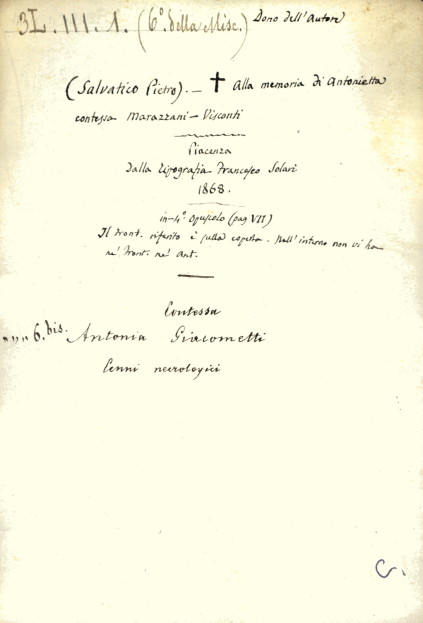 3L. III. 1. (6º. della Misc.) Dono dell'Autore
(Salvatico Pietro). — ✝ Alla memoria di Antonietta
contessa Marazzani-Visconti
Piacenza
Dalla Tipografia Francesco Solari
1868.
in-4º. Opuscolo (pag VII)
Il front. riferito è sulla coperta. Nell'interno non vi ha
nè front. nè ant.
Contessa
" " " 6. bis. Antonia Giacometti
Cenni necrologici
C.